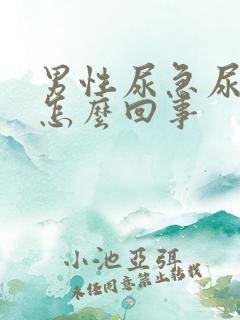 男性尿急尿
怎麼回事
小池亞弭
未经同意禁止转载